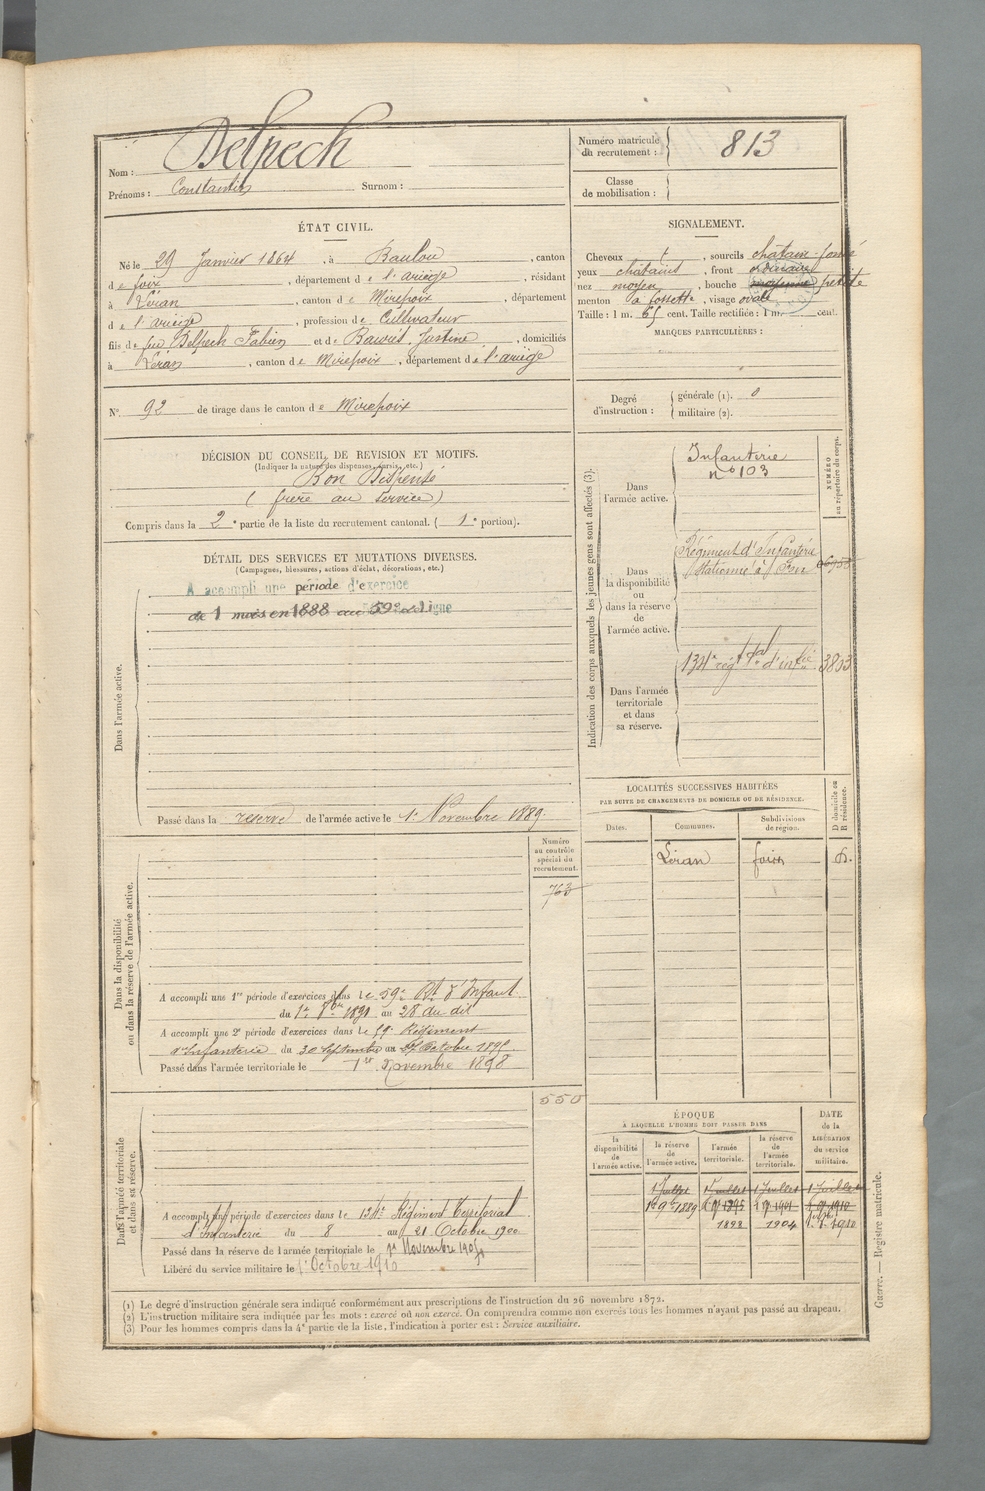 Nom : Delpech
Prénoms : Constantin Surnom :
Numéro matricule du recrutement : 813
Classe de mobilisation :
ÉTAT CIVIL.
Né le 29 Janvier 1864, à Baulou, canton
de foix, département de l'ariège, résidant
à Léran, canton de Mirepoix, département
de l'ariège, profession de Cultivateur
fils de feu Delpech Fabien et de Justine, domiciliés
à Léran, canton de Mirepoix, département de l'ariège
N° 92 de tirage dans le canton de Mirepoix
SIGNALEMENT.
Cheveux, sourcils châtain-foncé
yeux châtains, front ordinaire
nez moyen, bouche moyenne petite
menton à fossette, visage ovale
Taille : 1 m. 65 cent. Taille rectifiée : 1 m. cent.
MARQUES PARTICULIÈRES :
Degré d'instruction : générale (1). 0
militaire (2).
DÉCISION DU CONSEIL DE REVISION ET MOTIFS.
(Indiquer la nature des dispenses, sursis, etc.)
Bon Dispensé
(frère au service)
Compris dans la 2e partie de la liste du recrutement cantonal. (1e portion).
DÉTAIL DES SERVICES ET MUTATIONS DIVERSES.
(Campagnes, blessures, actions d'éclat, décorations, etc.)
Dans l'armée active.
A accompli une période d'exercice
de 1 mois en 1888 au 59e de Ligne
Passé dans la réserve de l'armée active le 1er Novembre 1889.
Indication des corps auxquels les jeunes gens sont affectés (3).
NUMÉRO au répertoire du corps.
Dans l'armée active.
Infanterie
n° 103
Dans la disponibilité ou dans la réserve de l'armée active.
Régiment d'Infanterie
stationné à
Dans l'armée territoriale et dans sa réserve.
134e régt tal d'infie 3803
LOCALITÉS SUCCESSIVES HABITÉES
PAR SUITE DE CHANGEMENTS DE DOMICILE OU DE RÉSIDENCE.
D domicile ou R résidence.
Dates. Communes. Subdivisions de région.
Léran foix D.
Numéro au contrôle spécial du recrutement.
763
Dans la disponibilité ou dans la réserve de l'armée active.
A accompli une 1re période d'exercices dans le 59e Rt d'Infant
du 1er 8bre 1891 au 28 du dit
A accompli une 2e période d'exercices dans le 59e Régiment
d'Infanterie du 30 Septembre au 27 Octobre 1895
Passé dans l'armée territoriale le 1er Novembre 1898
550
Dans l'armée territoriale et dans sa réserve.
A accompli une période d'exercices dans le 134e Régiment Territorial
d'Infanterie du 8 au 21 Octobre 1900
Passé dans la réserve de l'armée territoriale le 1er Novembre 1904
Libéré du service militaire le 1er Octobre 1910
ÉPOQUE
À LAQUELLE L'HOMME DOIT PASSER DANS
DATE de la LIBÉRATION du service militaire.
la disponibilité de l'armée active. la réserve de l'armée active. l'armée territoriale. la réserve de l'armée territoriale.
1 Juillet 1 Juillet 1 Juillet 1 Juillet
1er 9bre 1889 1895 1901 1910
1898 1904 1910
(1) Le degré d'instruction générale sera indiqué conformément aux prescriptions de l'instruction du 26 novembre 1872.
(2) L'instruction militaire sera indiquée par les mots : exercé ou non exercé. On comprendra comme non exercés tous les hommes n'ayant pas passé au drapeau.
(3) Pour les hommes compris dans la 4e partie de la liste, l'indication à porter est : Service auxiliaire.
Guerre. — Registre matricule.